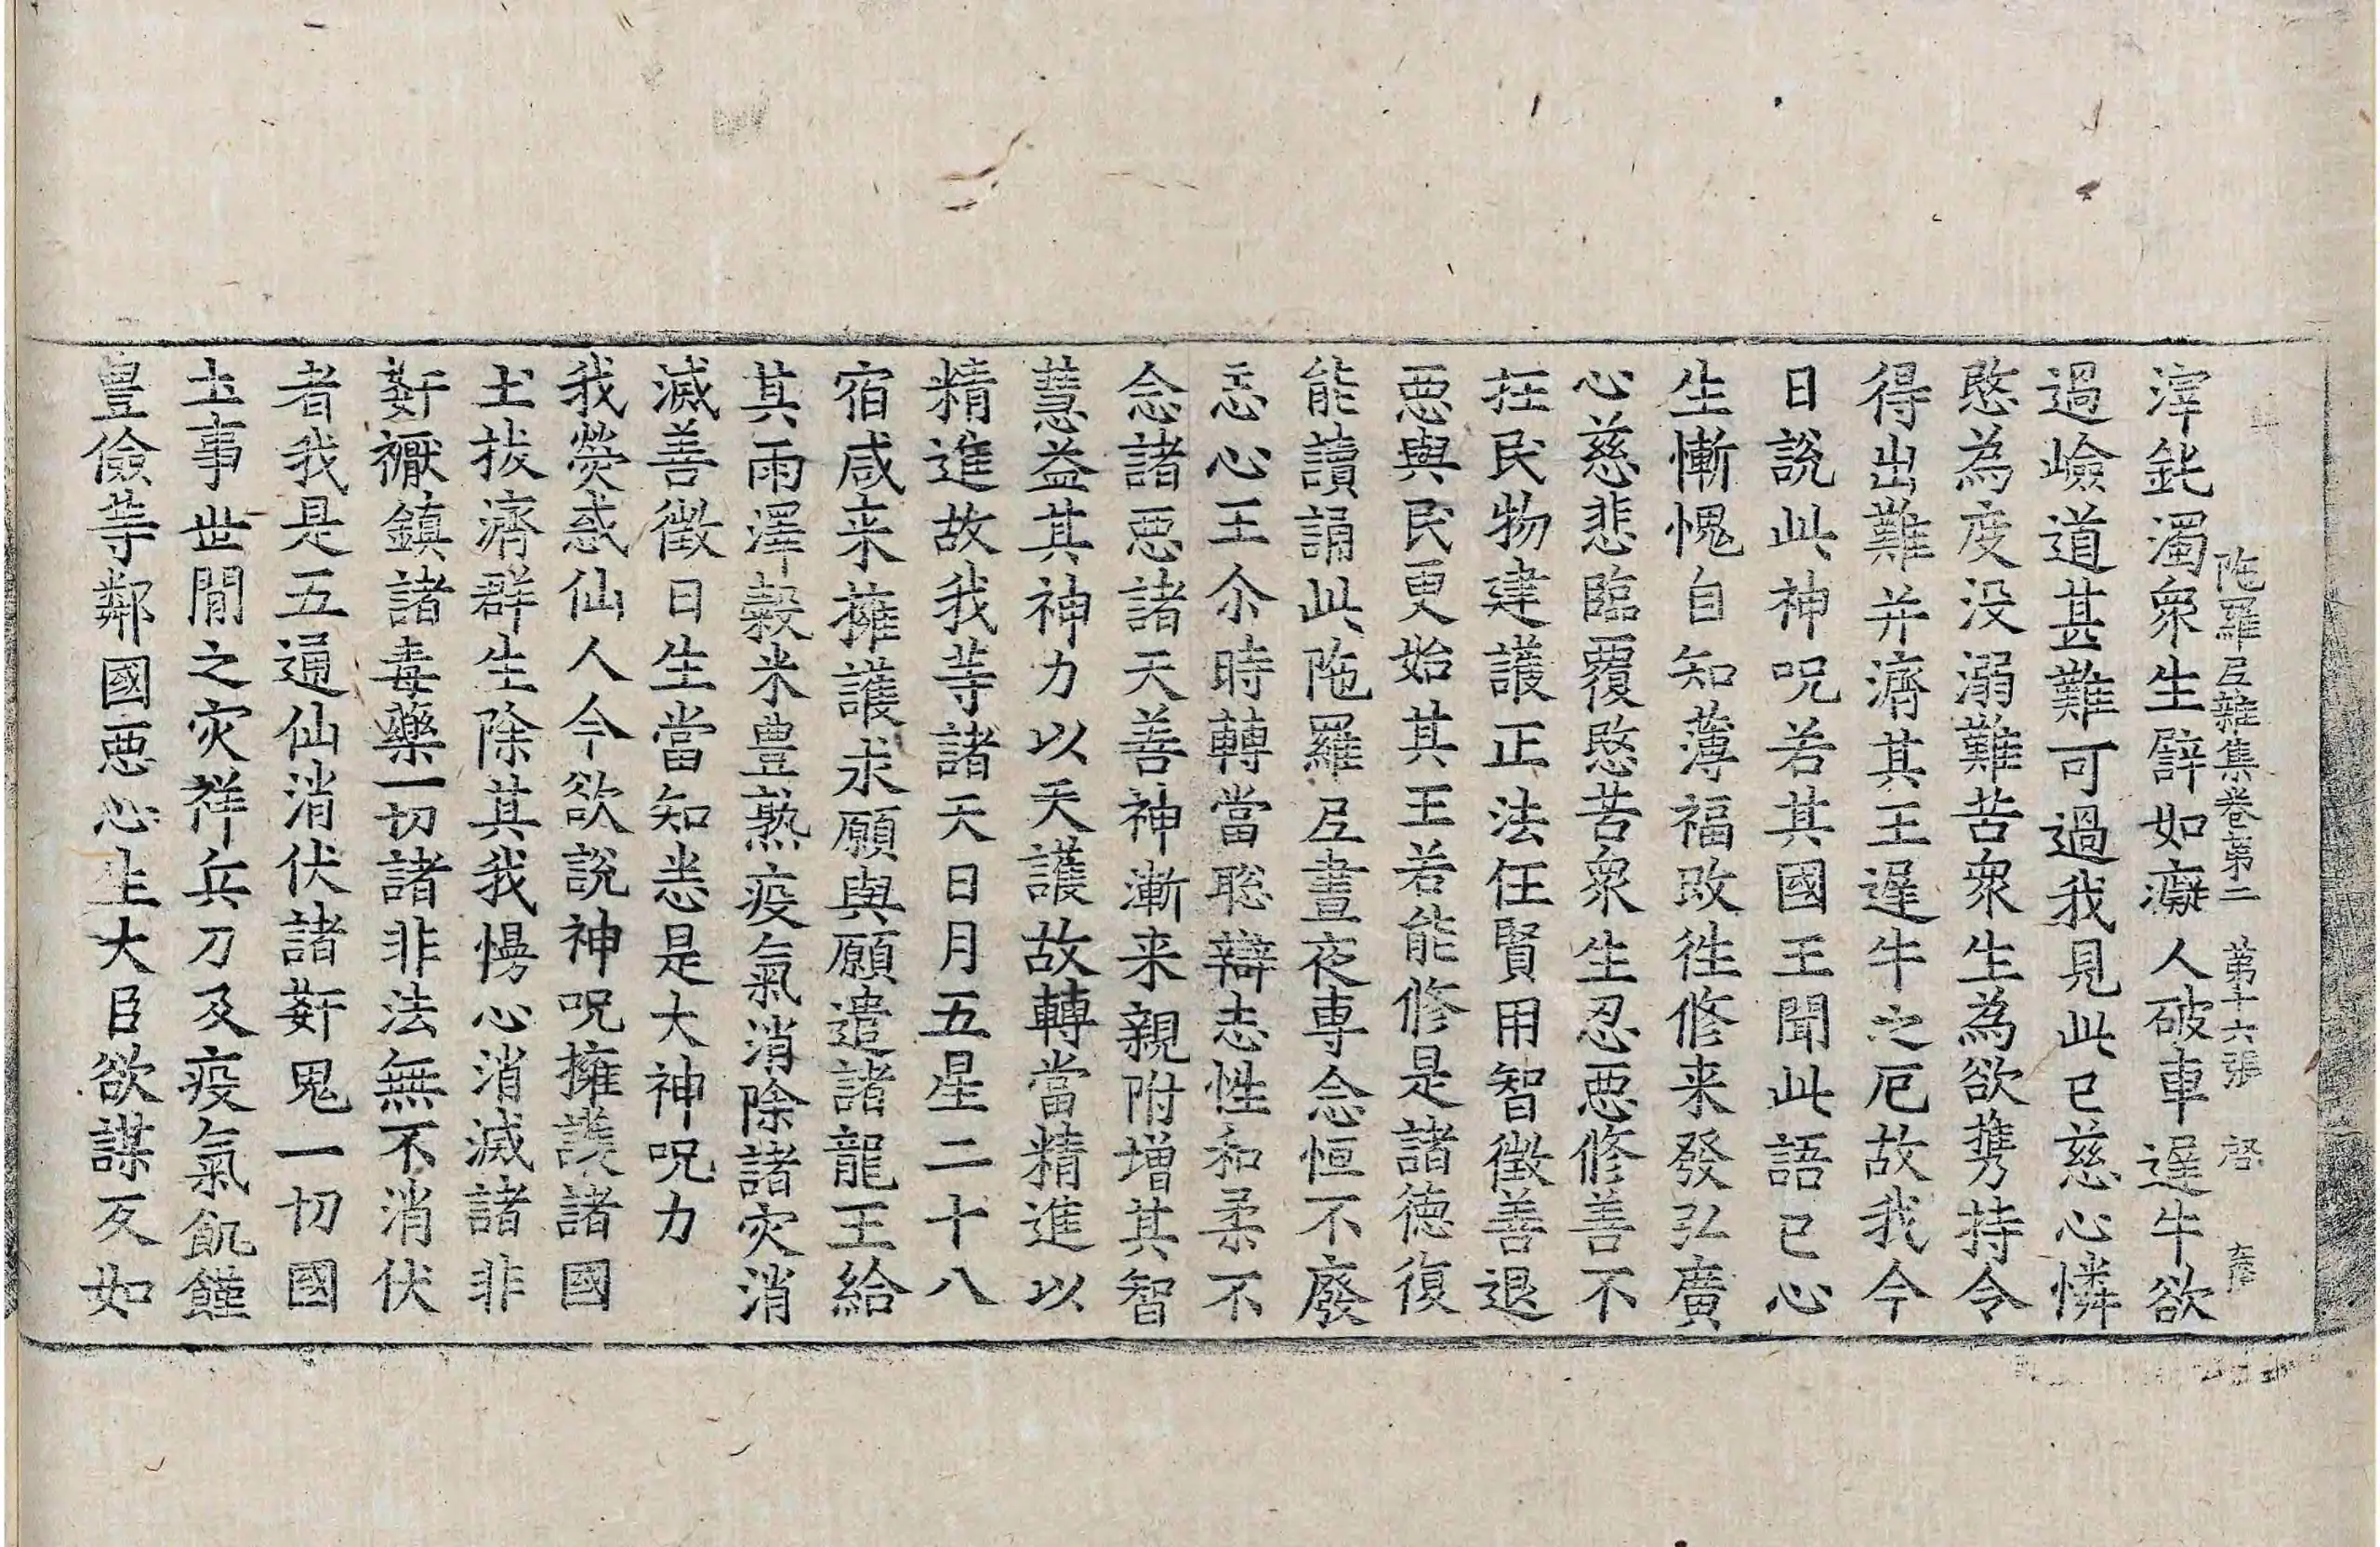 陁羅尼雜集卷第二 第十六張 啓
滓鈍濁衆生譬如癡人破車遟牛欲
過嶮道甚難可過我見此已慈心憐
愍為度没溺難苦衆生為欲攜持令
得出難并濟其王遟牛之厄故我今
日說此神呪若其國王聞此語已心
生慚愧自知薄福改徃修来發弘廣
心慈悲臨覆愍苦衆生忍惡修善不
抂民物建護正法任賢用智徵善退
惡與民更始其王若能修是諸德復
能讀誦此陁羅尼晝夜専念恒不廢
忘心王尒時轉當聡辯志性和柔不
念諸惡諸天善神漸来親附增其智
慧益其神力以天護故轉當精進以
精進故我等諸天日月五星二十八
宿咸来擁護求願與願遣諸龍王給
其雨澤穀米豊熟疫氣消除諸灾消
滅善徵日生當知恙是大神呪力
我熒惑仙人今欲說神呪擁護諸國
土拔濟群生除其我慢心消滅諸非
姧禰鎮諸毒藥一切諸非法無不消伏
者我是五通仙消伏諸姧鬼一切國
土事世間之灾祥兵刀及疫氣飢饉
豊儉等鄰國惡心生大臣欲謀反如